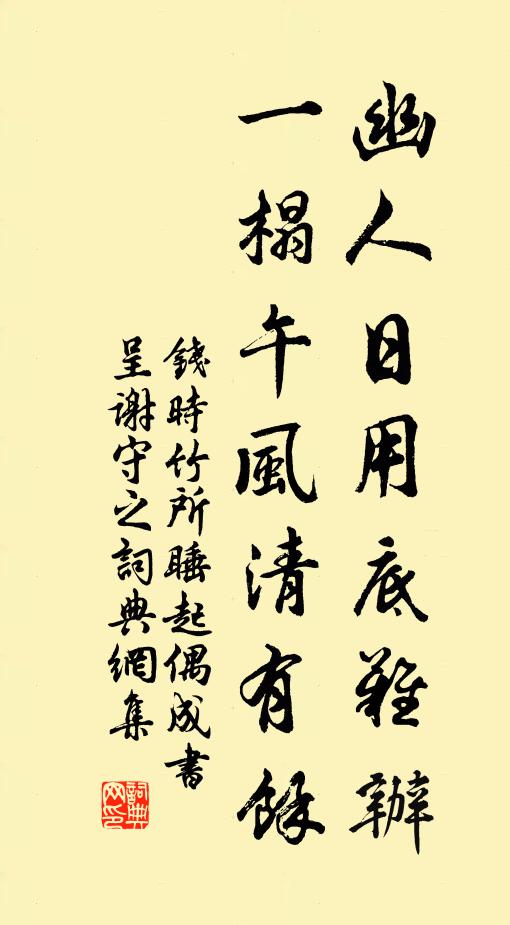 幽人日用底難辦
一榻午風清有餘
錢時竹所睡起偶成書
呈謝守之詞典網集
詞典網印